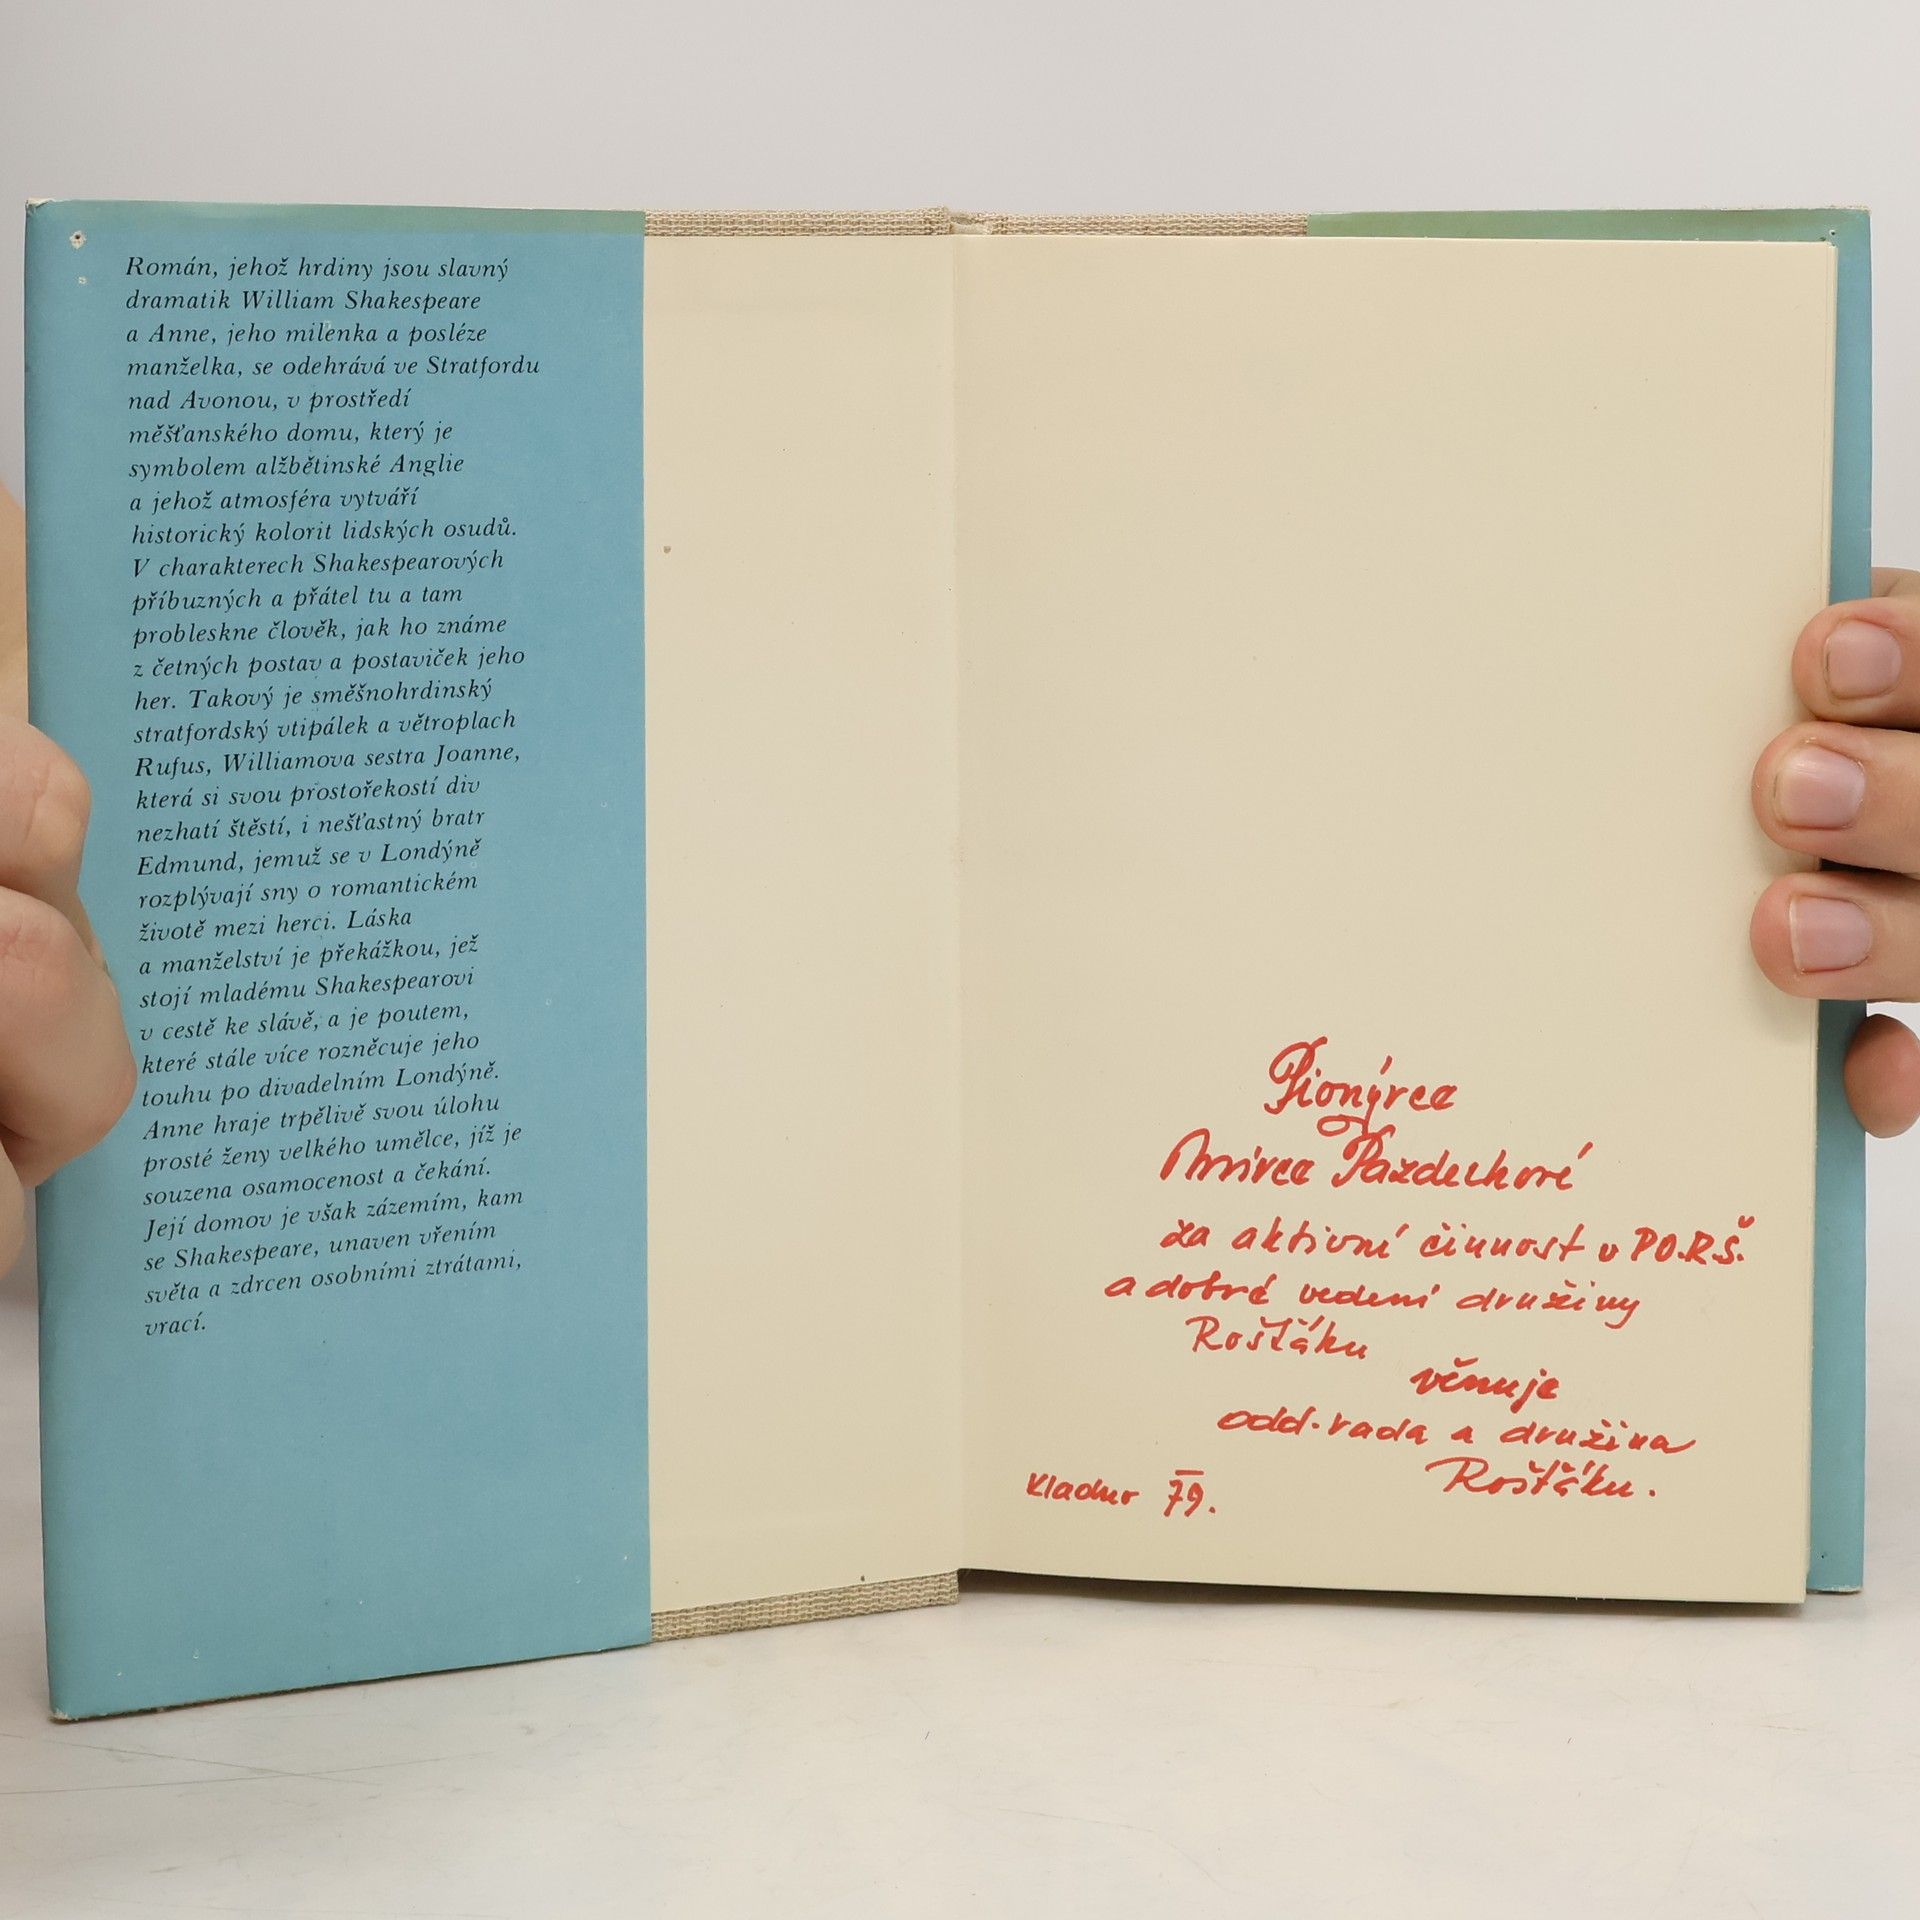 Román, jehož hrdiny jsou slavný
dramatik William Shakespeare
a Anne, jeho milenka a posléze
manželka, se odehrává ve Stratfordu
nad Avonou, v prostředí
měšťanského domu, který je
symbolem alžbětinské Anglie
a jehož atmosféra vytváří
historický kolorit lidských osudů.
V charakterech Shakespearových
příbuzných a přátel tu a tam
probleskne člověk, jak ho známe
z četných postav a postaviček jeho
her. Takový je směšnohrdinský
stratfordský vtipálek a větroplach
Rufus, Williamova sestra Joanne,
která si svou prostořekostí div
nezhatí štěstí, i nešťastný bratr
Edmund, jemuž se v Londýně
rozplývají sny o romantickém
životě mezi herci. Láska
a manželství je překážkou, jež
stojí mladému Shakespearovi
v cestě ke slávě, a je poutem,
které stále více rozněcuje jeho
touhu po divadelním Londýně.
Anne hraje trpělivě svou úlohu
prosté ženy velkého umělce, jíž je
souzena osamocenost a čekání.
Její domov je však zázemím, kam
se Shakespeare, unaven vřením
světa a zdrcen osobními ztrátami,
vrací.
Pionýrce
Mirce
za aktivní činnost v PO.R.Š.
a dobré vedení družiny
Rošťáku
věnuje
odd. rada a družina
Rošťáku.
Kladno 79.